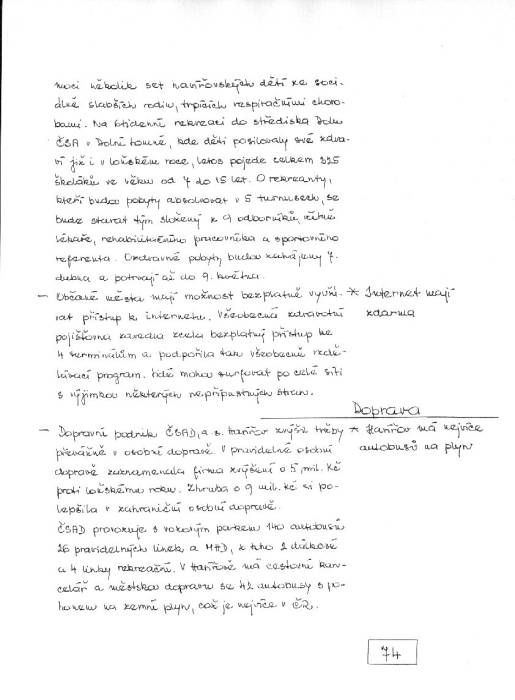 moci několik set havířovských dětí ze soci-
álně slabších rodin, trpících respiračními choro-
bami. Na třítýdenní rekreaci do střediska Dolu
ČSA v Dolní Lomné, kde děti posilovaly své zdra-
ví již i v loňském roce, letos pojede celkem 325
školáků ve věku od 7 do 15 let. O rekreanty,
kteří budou pobyty absolvovat v 5 turnusech, se
bude starat tým složený z 9 odborníků, včetně
lékaře, rehabilitačního pracovníka a sportovního
referenta. Ozdravné pobyty budou zahájeny 7.
dubna a potrvají až do 9. května.
– Občané města mají možnost bezplatně využí- * Internet mají
vat přístup k internetu. Všeobecná zdravotní zdarma
pojišťovna zavedla zcela bezplatný přístup ke
4 terminálům a podpořila tan všeobecně vzdě-
lávací program. Lidé mohou surfovat po celé síti
s výjimkou některých nepřípustných stran.
Doprava
– Dopravní podnik ČSAD, a.s. Havířov zvýšil tržby * Havířov má nejvíce
převážně v osobní dopravě. V pravidelné osobní autobusů na plyn
dopravě zaznamenala firma zvýšení o 5 mil. Kč
proti loňskému roku. Zhruba o 9 mil. Kč si po-
lepšila v zahraniční osobní dopravě.
ČSAD provozuje s vozovým parkem 140 autobusů
26 pravidelných linek a MHD, z toho 2 důlkové
a 4 linky rekreační. V Havířově má cestovní kan-
celář a městskou dopravu se 42 autobusy s po-
honem na zemní plyn, což je nejvíce v ČR.
74